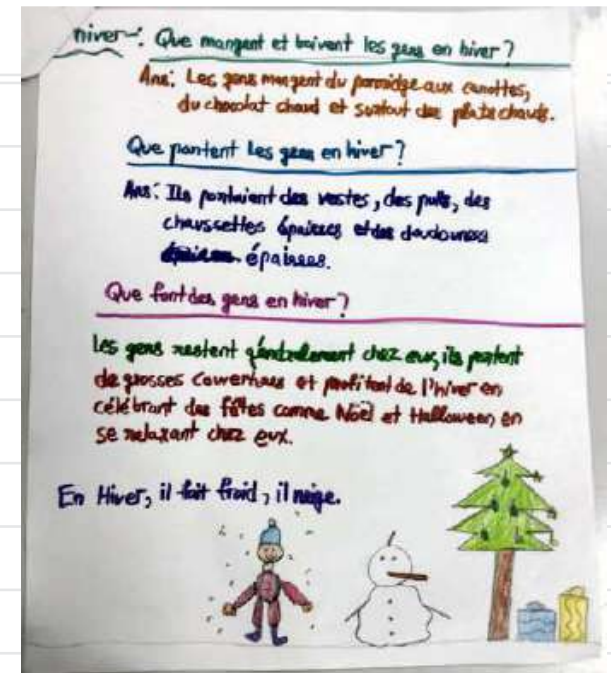 hiver : Que mangent et boivent les gens en hiver ?
Ans : Les gens mangent du porridge aux carottes,
du chocolat chaud et surtout des plats chauds.
Que portent les gens en hiver ?
Ans : Ils portaient des vestes, des pulls, des
chaussettes épaisses et des doudounes
épaisses.
Que font des gens en hiver ?
Les gens restent généralement chez eux, ils portent
de grosses couvertures et profitent de l'hiver en
célébrant des fêtes comme Noël et Halloween, en
se relaxant chez eux.
En Hiver, il fait froid, il neige.